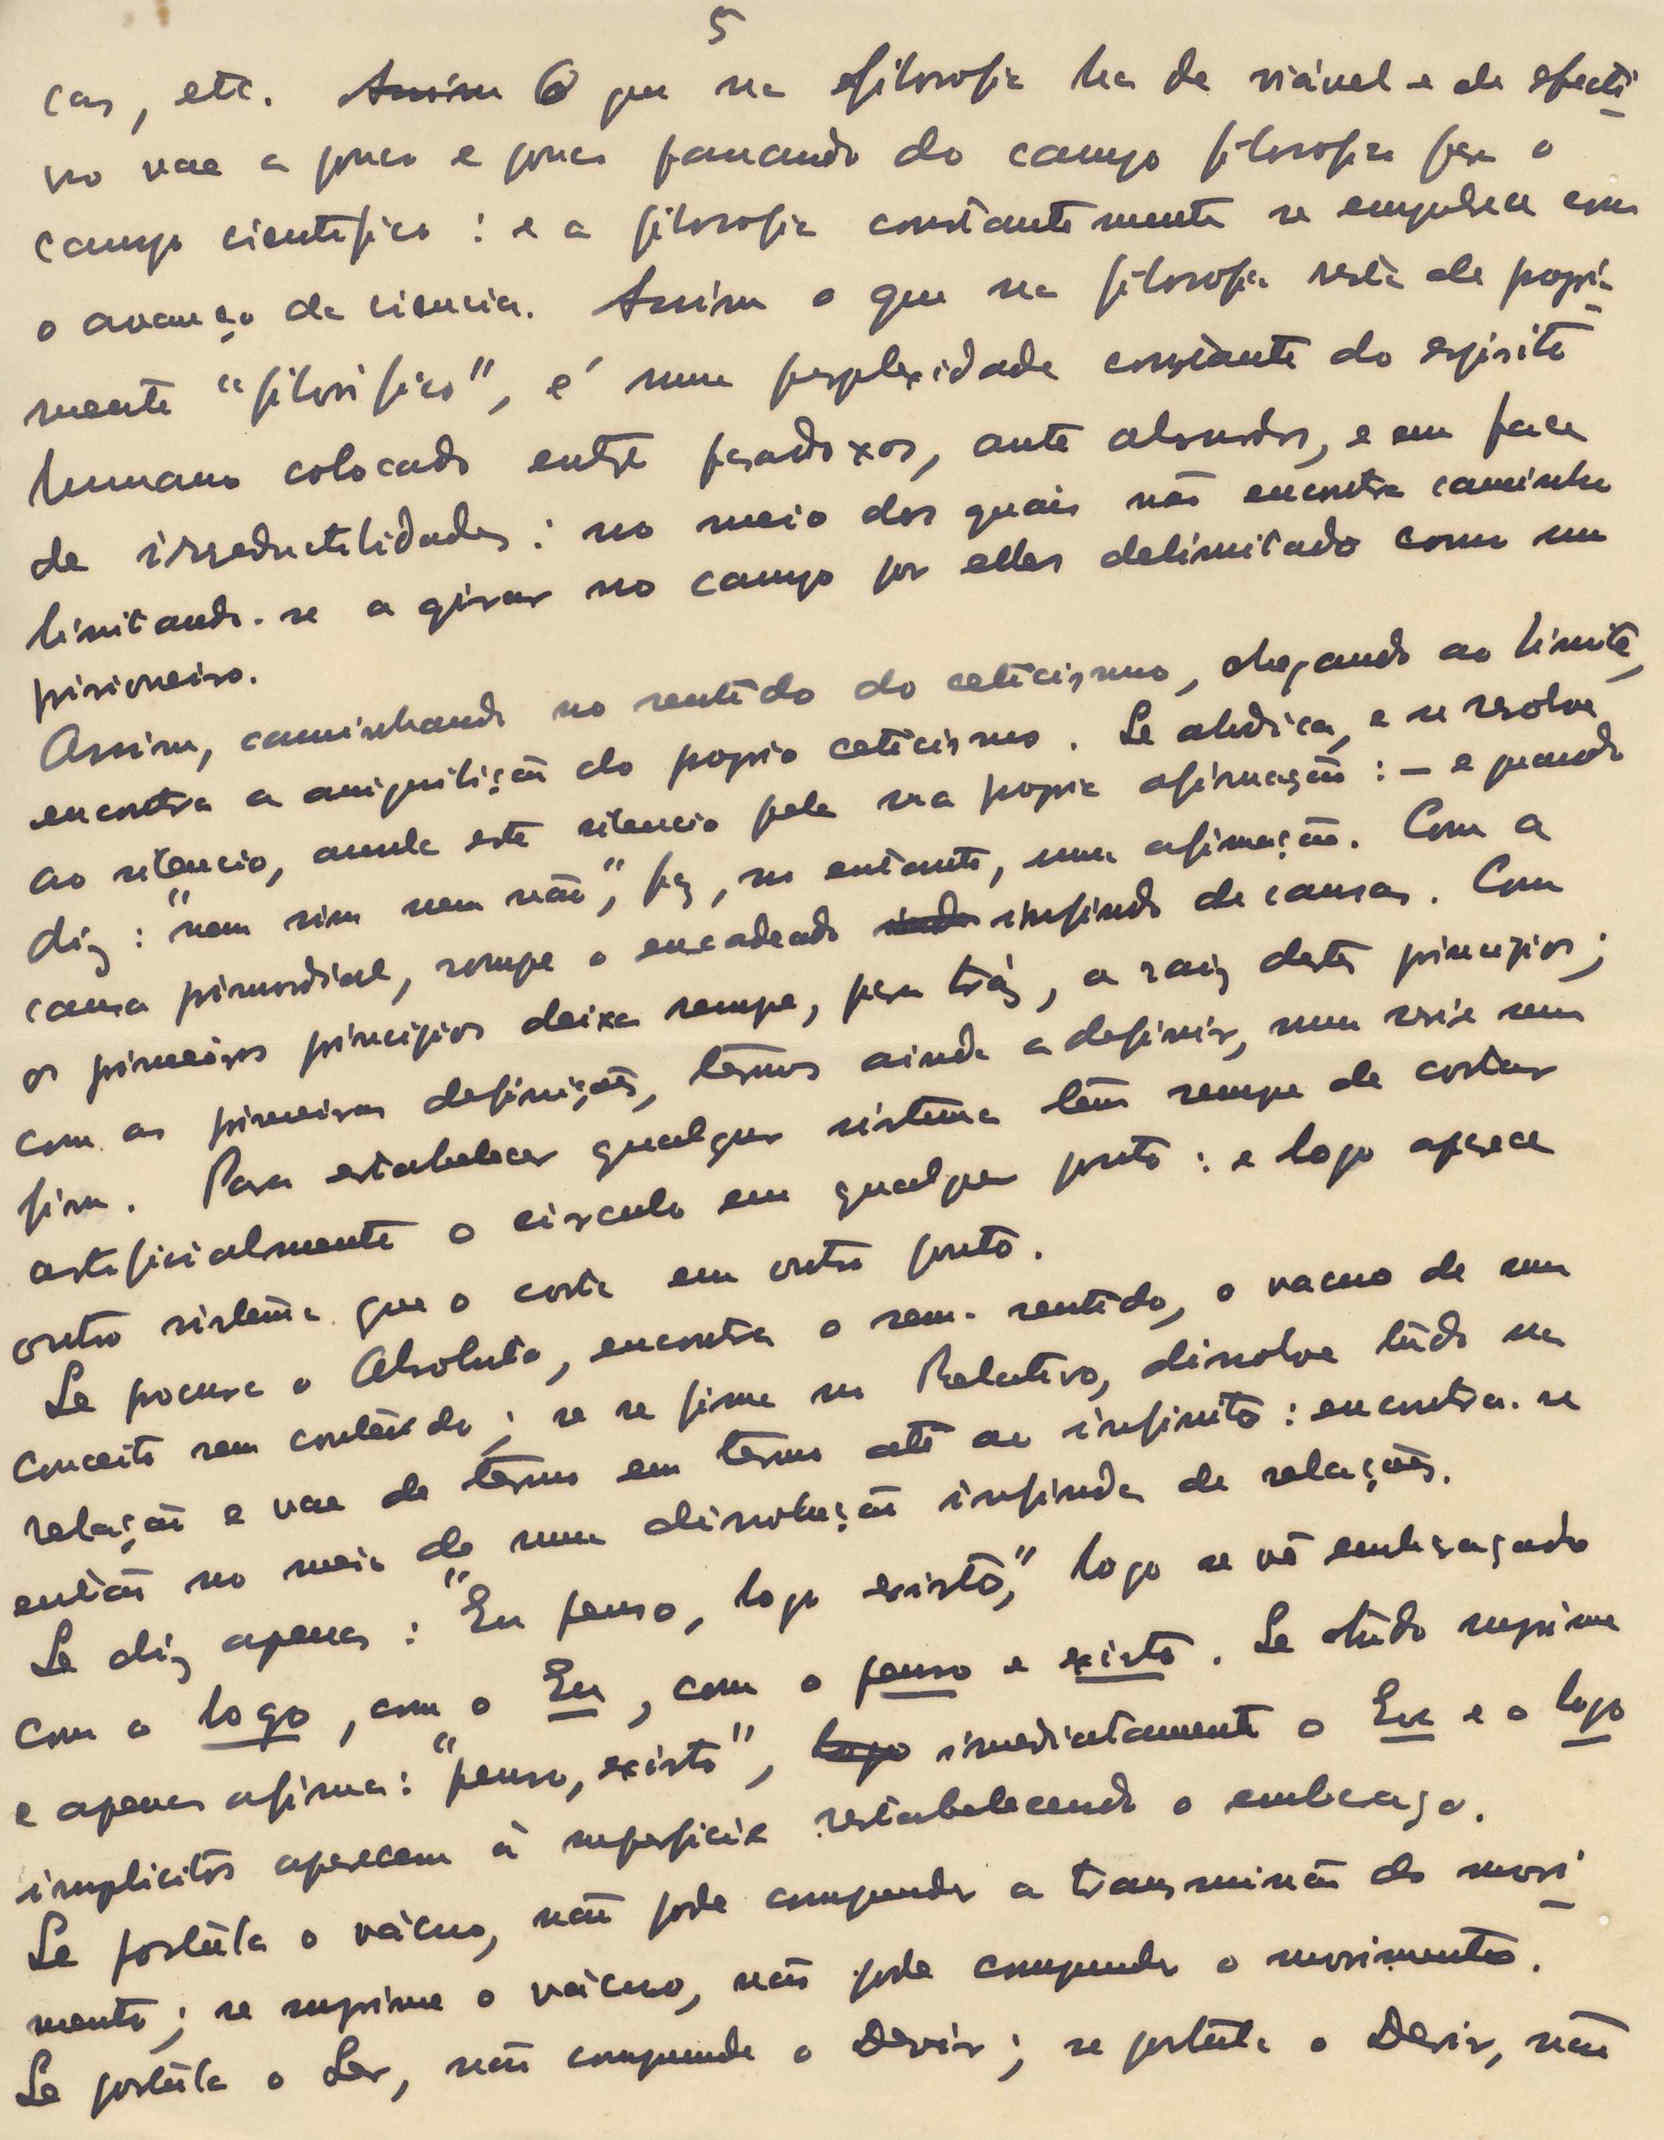 5
cas, etc. Assim O que na filosofia ha de viável e de efecti-
vo vae a pouco e pouco passando do campo filosofico para o
campo cientifico : e a filosofia constantemente se empobrece com
o avanço da ciencia. Assim o que na filosofia resta de propria-
mente "filosofico", é uma perplexidade constante do espirito
humano colocado entre paradoxos, ante absurdos, e em face
de irreductilidades : no meio dos quais não encontra caminho
limitando-se a girar no campo por elles delimitado como um
prisioneiro.
Assim, caminhando no sentido do ceticismo, chegando ao limite,
encontra a aniquilição do proprio ceticismo. Se abdica, e se resolve
ao silencio, anula este silencio pela sua propria afirmação : - e quando
diz : "nem sim nem não", faz, no entanto, uma afirmação. Com a
causa primordial, rompe o encadeado infindo de causas. Com
os primeiros principios deixa sempre, para traz, a raiz destes principios ;
com as primeiras definições, termos ainda a definir, numa serie sem
fim. Para estabelecer qualquer sistema tem sempre de cortar
artificialmente o circulo em qualquer ponto : e logo aparece
outro sistema que o corta em outro ponto.
Se procura o Absoluto, encontra o sem-sentido, o vacuo de um
conceito sem conteúdo ; se se firma no Relativo, dissolve tudo na
relação e vae de termo em termo até ao infinito : encontra-se
então no meio de uma dissolução infinda de relações.
Se diz apenas : "Eu penso, logo existo", logo se vê embaraçado
com o logo, com o Eu, com o penso e existo. Se tudo suprime
e apenas afirma : "penso, existo", logo imediatamente o Eu e o logo
implicitos aparecem à superficie restabelecendo o embaraço.
Se postula o vácuo, não pode compreender a transmissão do movi-
mento ; se suprime o vácuo, não pode compreender o movimento.
Se postula o Ser, não compreende o Devir ; se postula o Devir, não